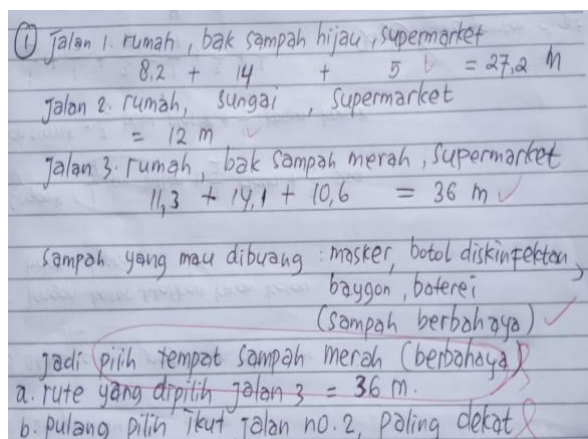 ① Jalan 1. rumah, bak sampah hijau, supermarket
8,2 + 14 + 5 = 27,2 M
Jalan 2. rumah, sungai, supermarket
= 12 m
Jalan 3. rumah, bak sampah merah, supermarket
11,3 + 14,1 + 10,6 = 36 m
sampah yang mau dibuang : masker, botol diskinfektan,
baygon, baterei
(sampah berbahaya)
Jadi pilih tempat sampah merah (berbahaya)
a. rute yang dipilih Jalan 3 = 36 m.
b. pulang pilih ikut jalan no. 2, paling dekat